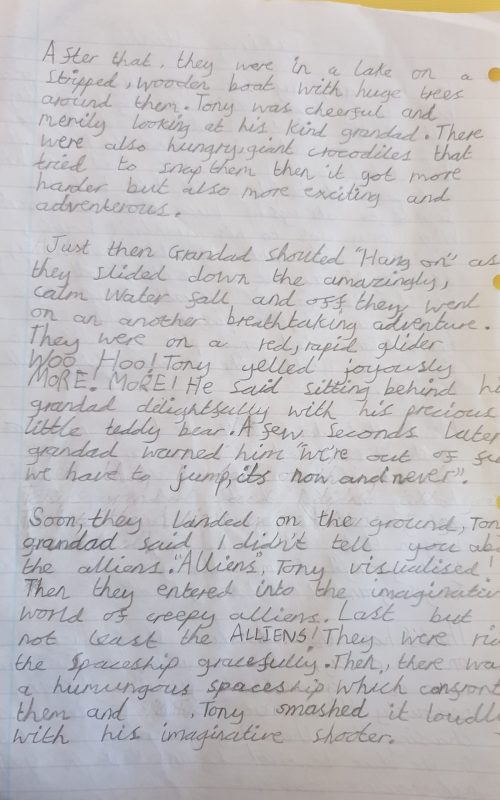 After that, they were in a lake on a
stripped, wooden boat with huge trees
around them. Tony was cheerful and
merily looking at his kind grandad. There
were also hungry, giant crocodiles that
tried to snap them then it got more
harder but also more exciting and
adventerous.
Just then Grandad shouted "Hang on" as
they slided down the amazingly,
calm water fall and off they went
on an another breathtaking adventure.
They were on a red, rapid glider
Woo Hoo! Tony yelled joyously
MORE! MORE! He said sitting behind
grandad delightsfully with his precious
little teddy bear. A few seconds later
grandad warned him "We're out of
we have to jump, its now and never".
Soon, they landed on the ground,
grandad said I didn't tell you
the alliens. "Alliens", Tony visualised!
Then they entered into the
world of creepy alliens. Last but
not least the ALLIENS! They were
the spaceship gracefully. Then, there
a humungous spaceship which
them and , Tony smashed it
with his imaginative shooter.